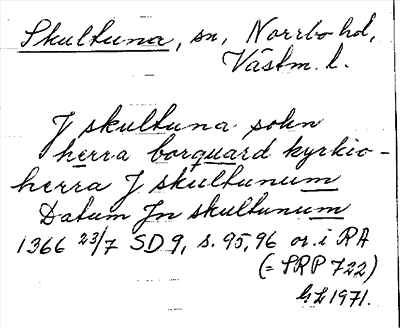 Skultuna, sn, Norrbo hd,
Västm. l.
J skultuna sokn
herra borquard kyrkio-
herra J skultunum
Datum Jn skultunum
1366 23/7 SD 9, s. 95, 96 or. i RA
(= SRP 722)
1971.